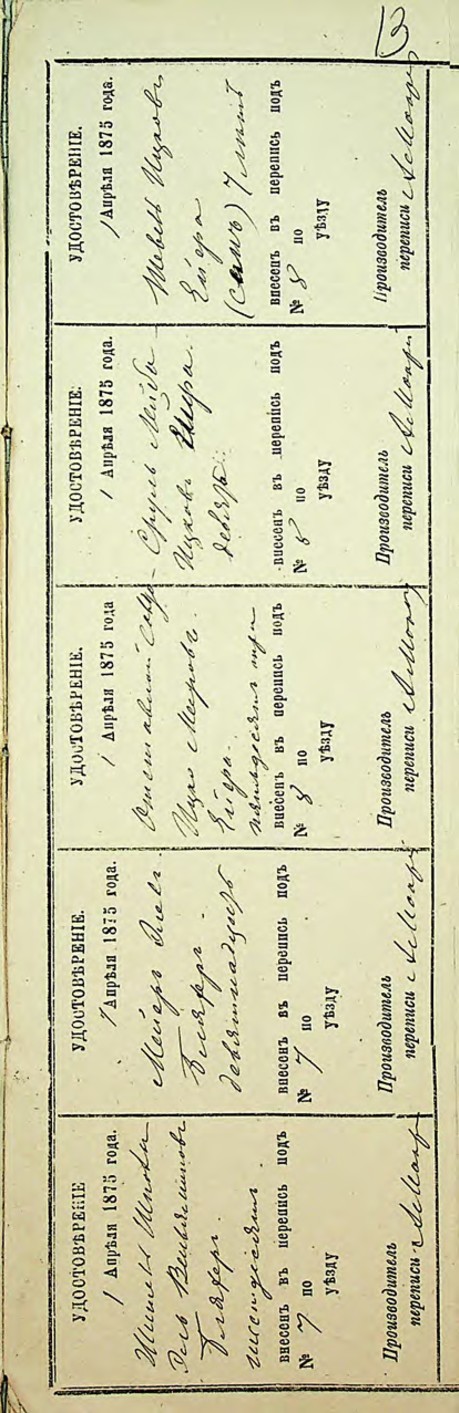 13
УДОСТОВѢРЕНІЕ
1 Апрѣля 1875 года.
Вельяминовъ
шестьдесятъ
внесенъ въ перепись подъ
№ 7 по
уѣзду
Производитель
переписи
УДОСТОВѢРЕНІЕ.
1 Апрѣля 1875 года.
Мейеръ
девятнадцать
внесенъ въ перепись подъ
№ 7 по
уѣзду
Производитель
переписи
УДОСТОВѢРЕНІЕ.
1 Апрѣля 1875 года
Отставной
Ицко Мееровъ
Егера
пятьдесятъ три
внесенъ въ перепись подъ
№ 8 по
уѣзду
Производитель
переписи
УДОСТОВѢРЕНІЕ.
1 Апрѣля 1875 года.
Сруль Лейба
Ицковъ Егера
девять
внесенъ въ перепись подъ
№ 8 по
уѣзду
Производитель
переписи
УДОСТОВѢРЕНІЕ.
1 Апрѣля 1875 года.
Шевель Ицковъ
Егера
(сынъ) 7 лѣтъ
внесенъ въ перепись подъ
№ 8 по
уѣзду
Производитель
переписи